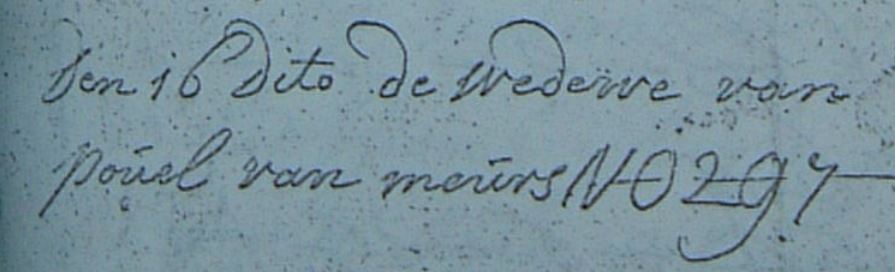 Den 16 Dito de wedewe van
poüel van meürs NO 297